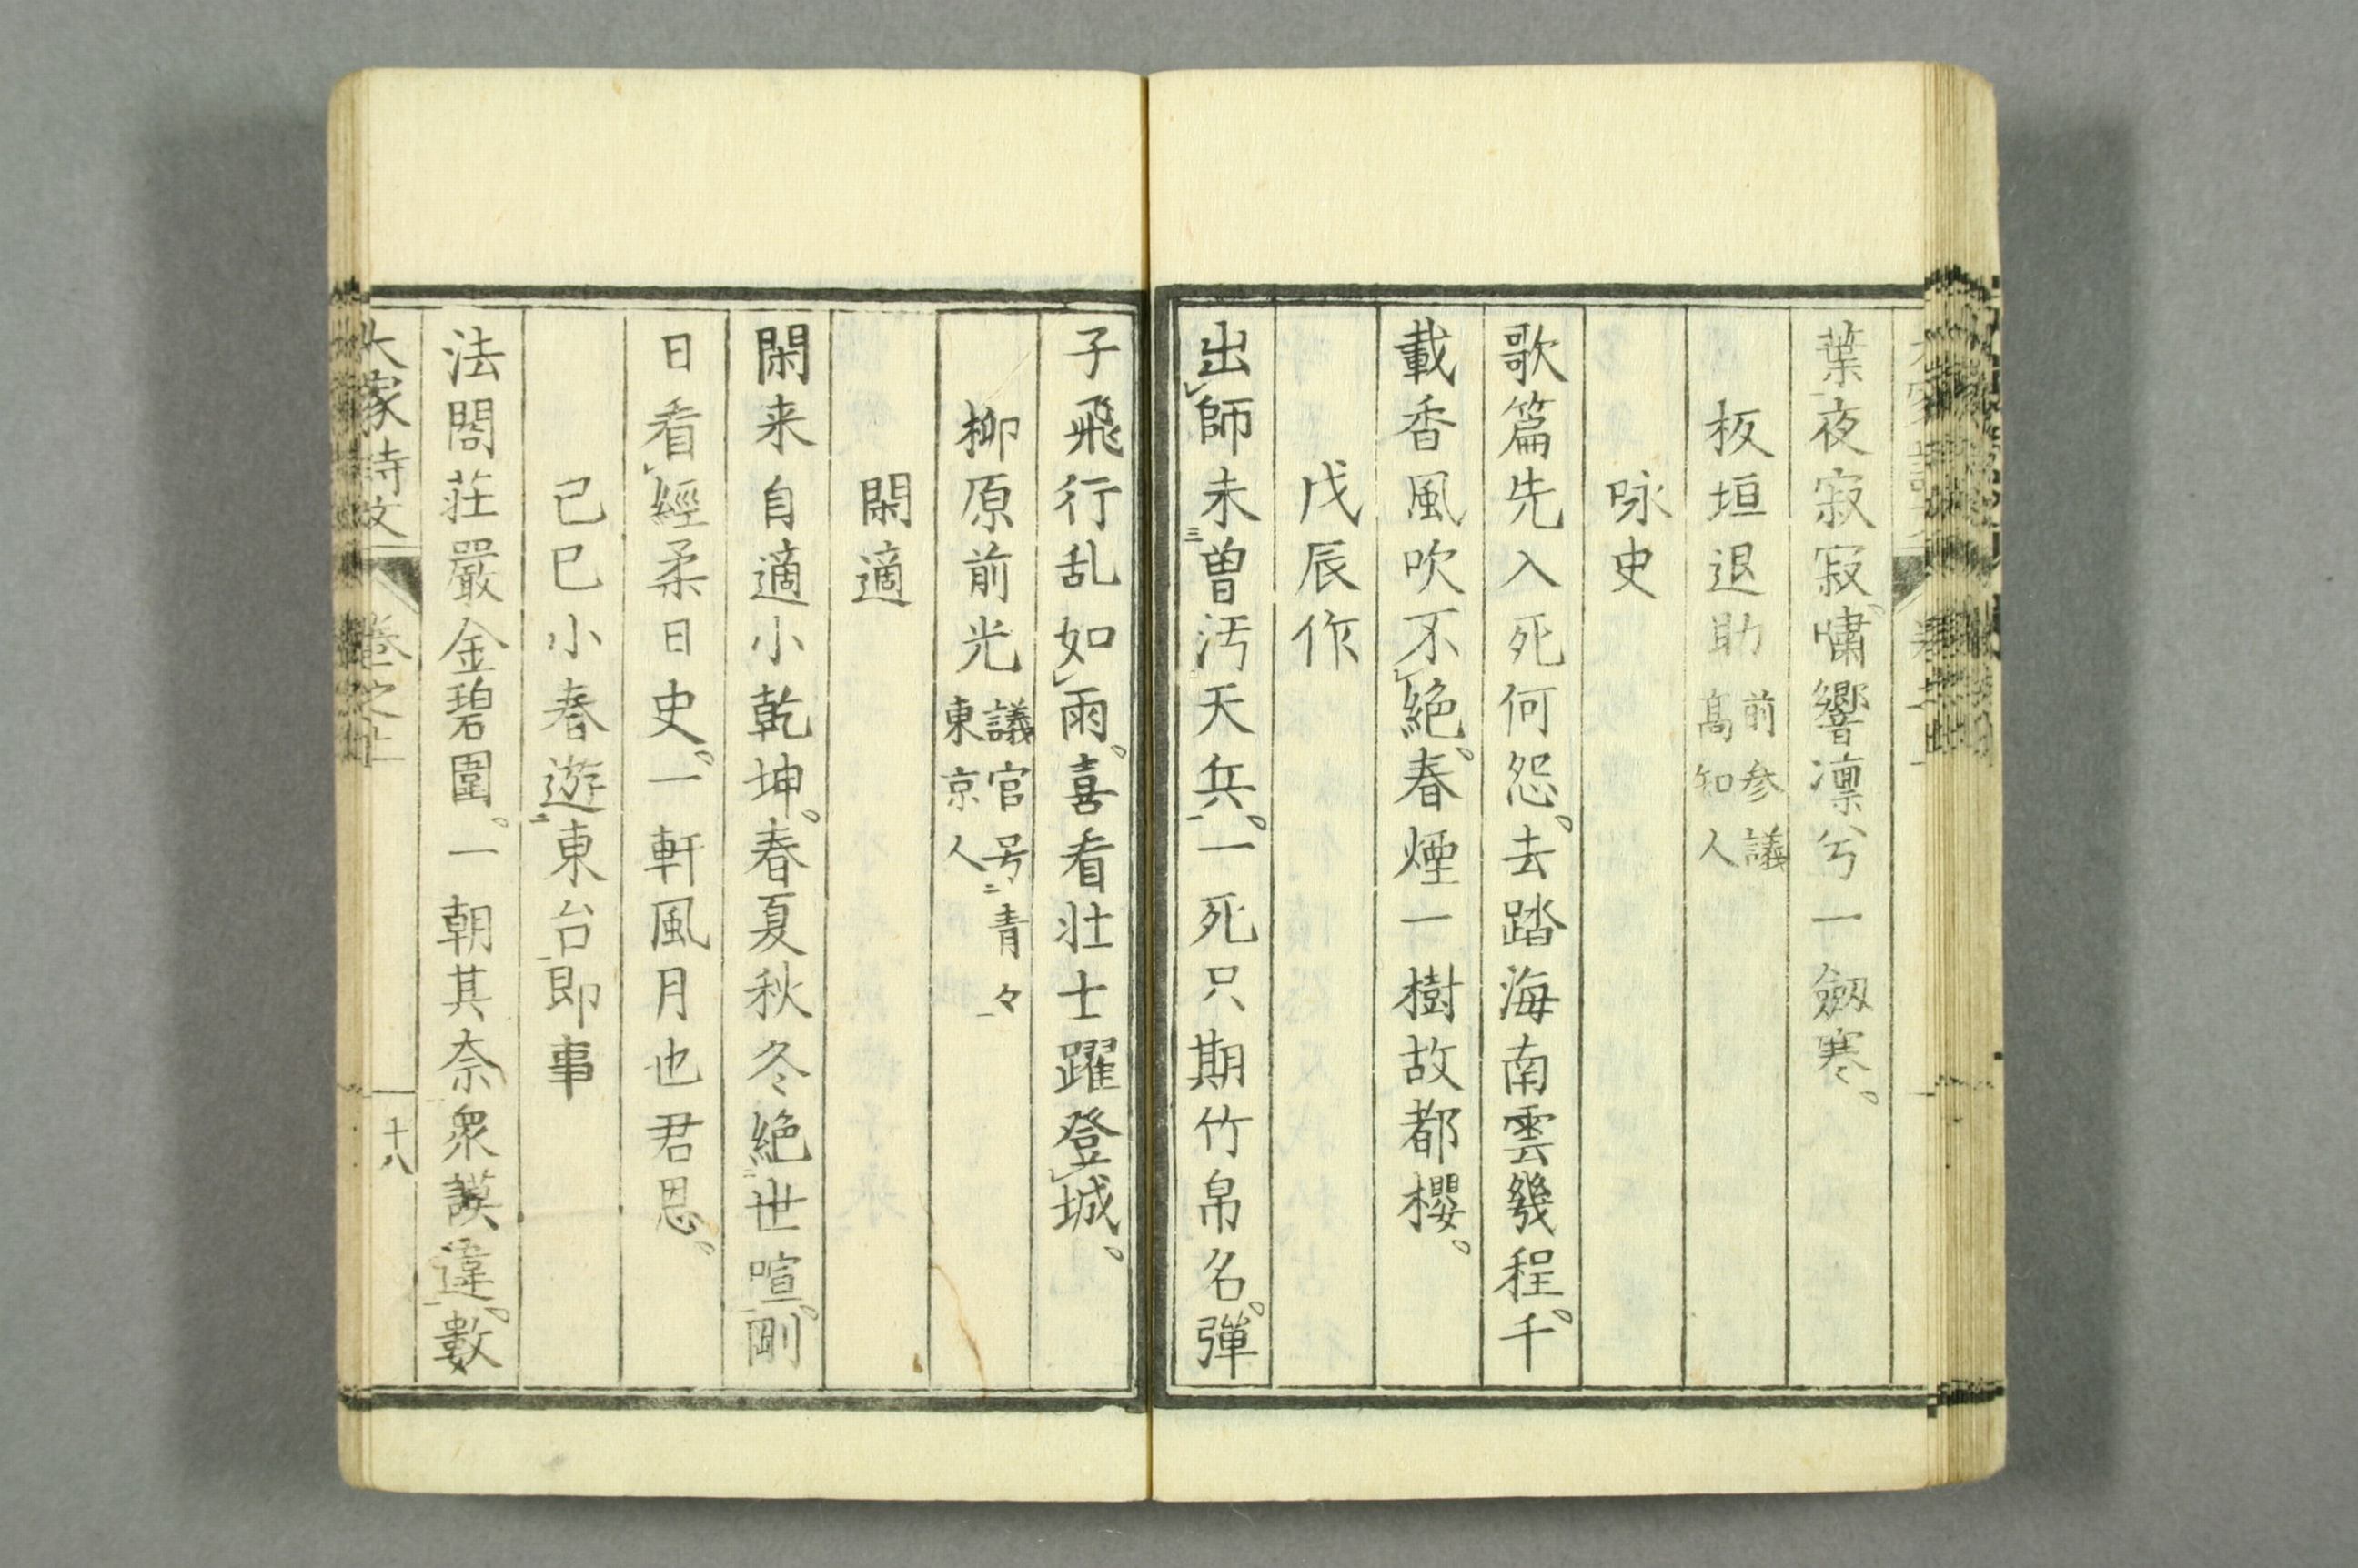 葉夜寂寂。嘯響凛兮一劔寒。
板垣退助 前参議 高知人
咏史
歌篇先入死何怨。去踏海南雲幾程。千
載香風吹不絶。春煙一樹故都櫻。
戊辰作
出師未曽汚天兵。一死只期竹帛名。彈
子飛行乱如雨。喜看壮士躍登城。
柳原前光 議官号青々 東京人
閑適
閑来自適小乾坤。春夏秋冬絶世喧。剛
日看經柔日史。一軒風月也君恩。
己巳小春遊東台即事
法閣荘嚴金碧圍。一朝其奈衆謨違。數
大家詩文 卷之上 十八